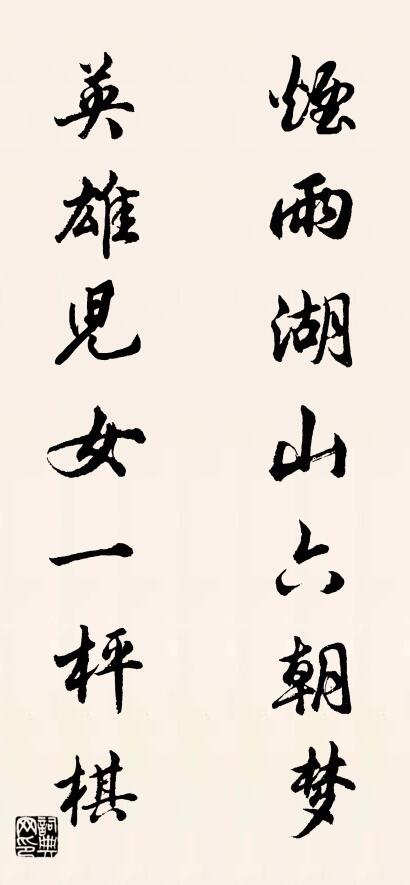 煙雨湖山六朝梦
英雄児女一枰棋
詞典网印